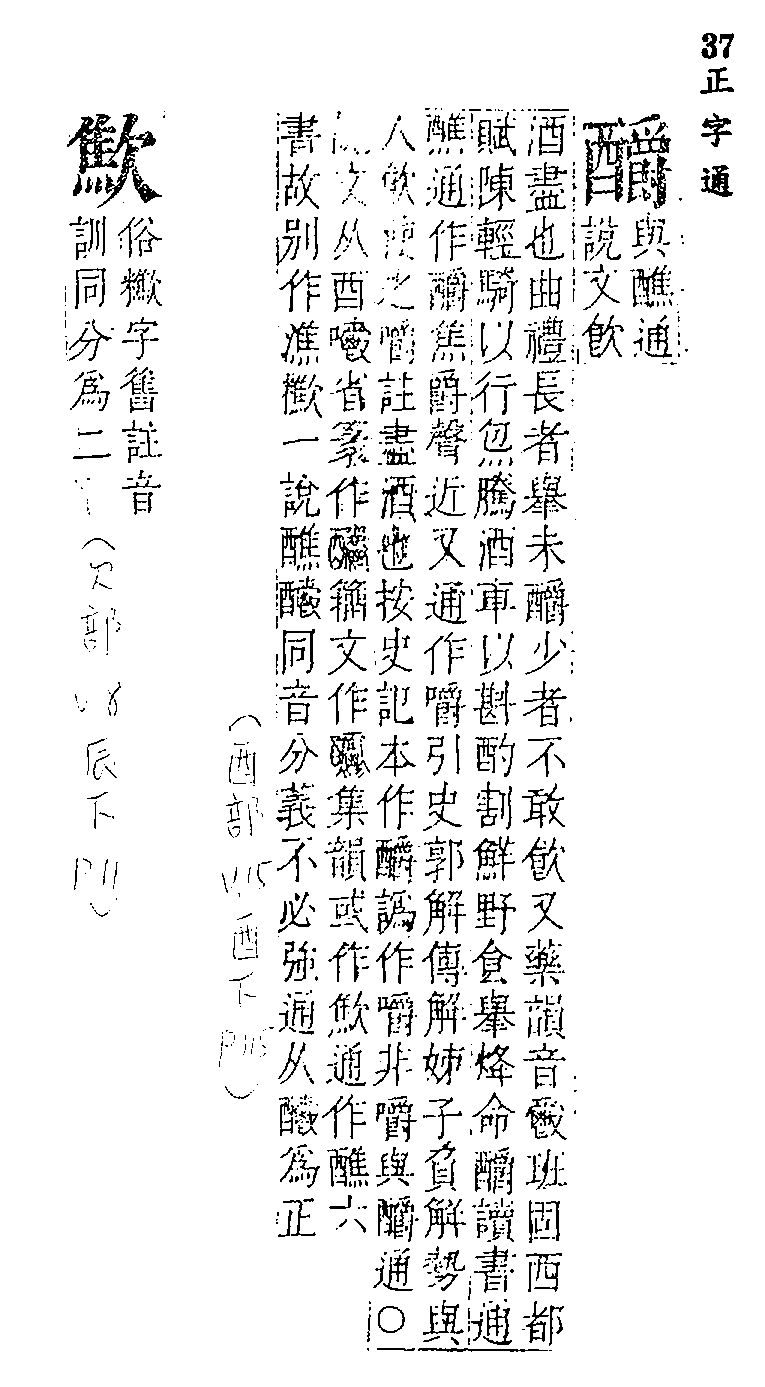 37正字通
釂
與醮通
說文飲
酒盡也曲禮長者舉未釂少者不敢飲又藥韻音嚼班固西都
賦陳輕騎以行炰騰酒車以斟酌割鮮野食舉烽命釂讀書通
醮通作釂焦爵聲近又通作嚼引史郭解傳解姊子負解勢與
人飲使之嚼註盡酒也按史記本作釂譌作嚼非嚼與釂通○
說文从酉嚼省篆作 籀文作 集韻或作䲴通作醮六
書故別作潐 一說醮釂同音分義不必強通从釂為正
(酉部V.15酉下P115)
俗 字舊註音
訓同分為二
(欠部V.8辰下P11)